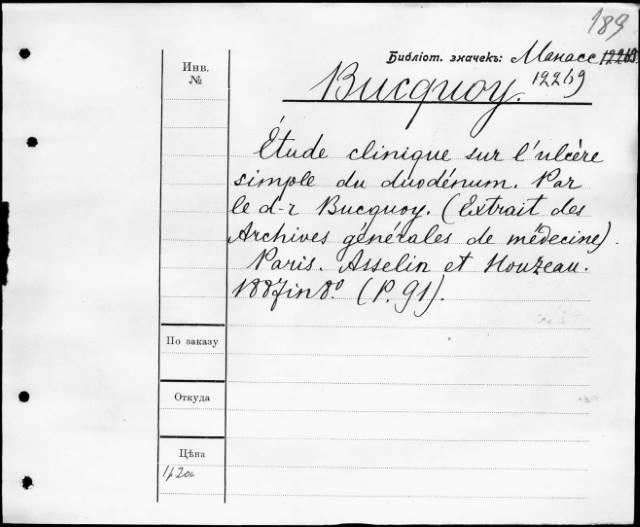 189
Библіот. значекъ: Манасс 12269
12269
Инв.
№
Bucquoy.
Étude clinique sur l'ulcère
simple du duodénum. Par
le d-r Bucquoy. (Extrait des
Archives générales de médecine).
Paris. Asselin et Houzeau.
1887 in 8.° (P. 91).
По заказу
Откуда
Цѣна